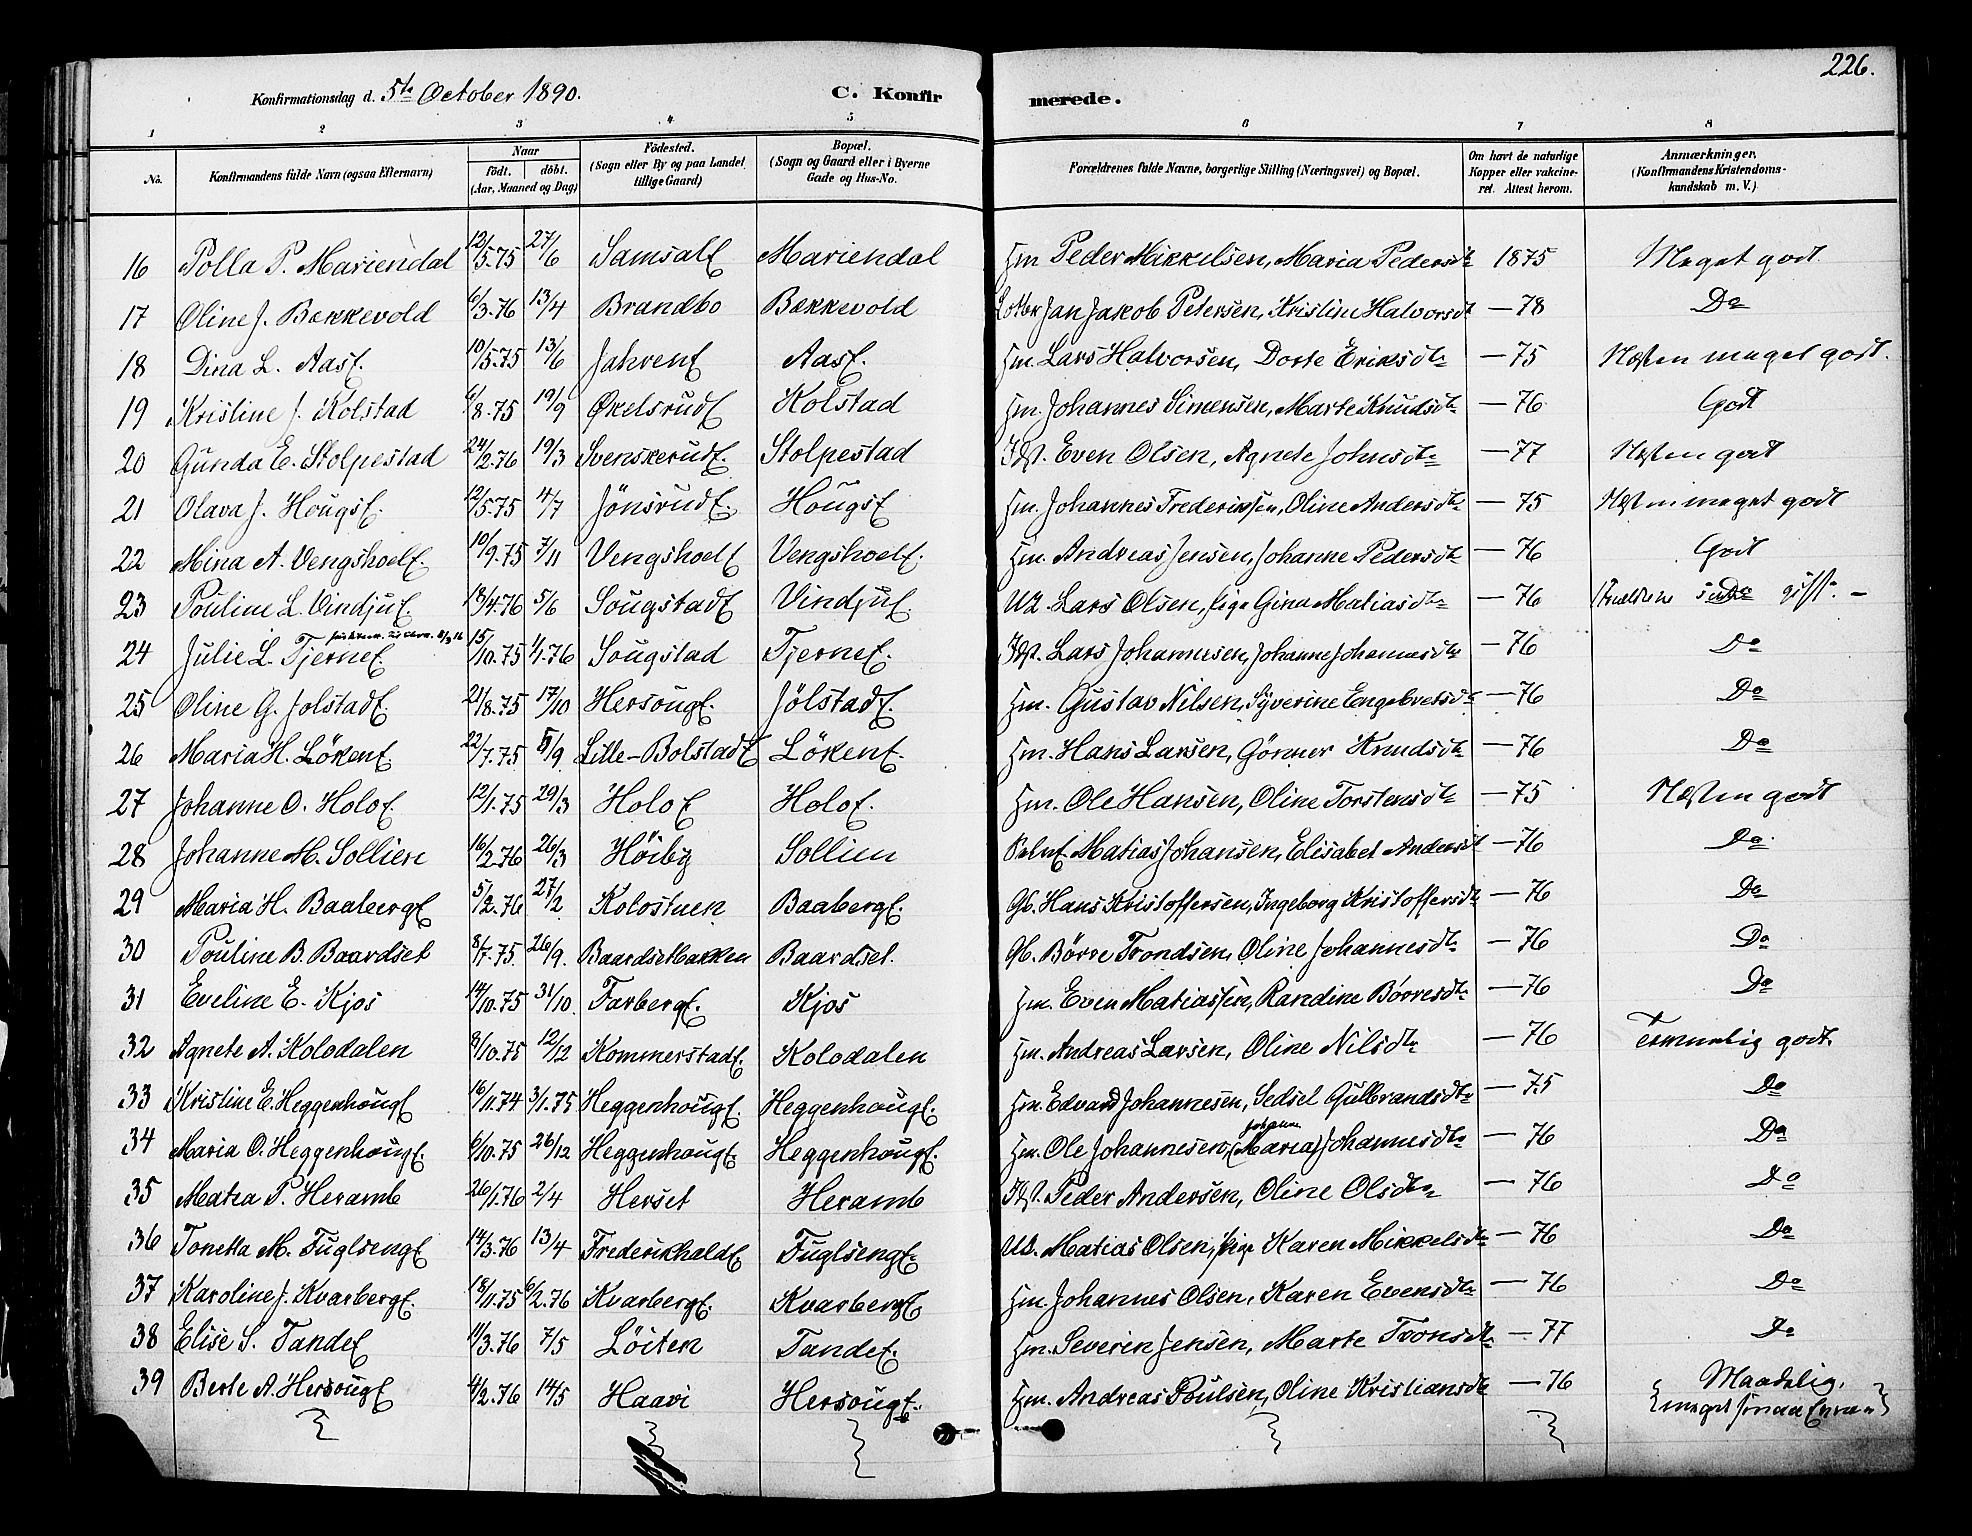 226.
Konfirmationsdag d. 5te October 1890. C. Konfirmerede.
1 2 3 4 5 6 7 8
No. Konfirmandens fulde Navn (ogsaa Efternavn) Naar födt. döbt. (Aar, Maaned og Dag) Födested. (Sogn eller By og paa Landet tillige Gaard) Bopæl. (Sogn og Gaard eller i Byerne Gade og Hus-No. Forældrenes fulde Navne, borgerlige Stilling (Næringsvei) og Bopæl. Om havt de naturlige Kopper eller vakcineret. Attest herom. Anmærkninger. (Konfirmandens Kristendomskundskab m. V.)
16 Polla P. Mariendal 12/5.75 27/6 SamsalE Mariendal Hm Peder Mikkelsen, Maria Pedersdtr 1875 Meget godt
17 Oline J. Bakkevold 6/3.76 13/4 Brandbo Bakkevold Jan Jakob Petersen, Kristine Halvorsdt — 78 Do
18 Dina L. AasE. 10/5.75 13/6 JahrenE AasE. Hm. Lars Halvorsen, Dorte Eriksdtr — 75 Næsten meget godt.
19 Kristine J. Kolstad 6/8.75 19/9 ØkelsrudE Kolstad Hm. Johannes Simensen, Marte Knudsdtr — 76 Godt
20 Gunda E. Stolpestad 24/2.76 19/3 SvenskerudE. Stolpestad Even Olsen, Agnete Johnsdtr — 77 Næsten godt
21 Olava J. HougsE. 12/5.75 4/7 JönsrudE. HougsE Hm. Johannes Frederiksen, Oline Andersdtr — 75 Næsten meget godt
22 Mina A. VengshoelE. 10/9.75 7/11 VengshoelE VengshoelE. Hm. Andreas Jensen, Johanne Pedersdtr — 76 Godt
23 Pouline L. VindjuE. 18/4.76 5/6 SougstadE VindjuE. Lars Olsen, pige Gina Matiasdtr — 76 Do gift. —
24 Julie L. TjerneE. 15/10.75 1/1.76 Sougstad TjerneE. Lars Johannesen, Johanne Johannesdtr — 76 Do
25 Oline G. JolstadE. 21/8.75 17/10 HersougE. JölstadE. Hm. Gustav Nilsen, Syverine Engebretsdtr — 76 Do
26 Maria H. LökenE. 22/7.75 5/9 Lille-BolstadE LökenE. Hm. Hans Larsen, Görner Knudsdtr — 76 Do
27 Johanne O. HoloE. 12/1.75 29/3 HoloE HoloE. Hm. Ole Hansen, Oline Torstensdtr — 75 Næsten godt
28 Johanne M. Sollien 16/2.76 26/3 Höiby Sollien Matias Johansen, Elisabet Andersdt — 76 Do
29 Maria H. BaabergE 5/2.76 27/2 Kolostuen BaabergE. Gb. Hans Kristoffersen, Ingeborg Kristoffersdtr — 76 Do
30 Pouline B. Baardset 8/7.75. 26/9. Baardsetbakken Baardset. Gb. Börre Trondsen, Oline Johannesdtr — 76 Do
31 Eveline E. Kjos 14/10.75 31/10. FarbergE. Kjos Hm. Even Matiassen, Randine Börresdtr — 76 Do
32 Agnete A. Kolodalen 9/10.75 12/12 KommerstadE. Kolodalen Hm. Andreas Larsen, Oline Nilsdtr — 76 Temmelig godt.
33 Kristine E. HeggenhougE 16/11.74 3/1.75 HeggenhougE. HeggenhougE. Hm. Edvard Johannesen, Sedsel Gulbrandsdtr — 75 Do
34 Maria O. HeggenhougE. 6/10.75 26/12 HeggenhougE. HeggenhougE. Hm. Ole Johannesen, (Maria) Johannesdtr — 76 Do
35 Matea P. Heramb 26/1.76 2/4 Herset Heramb Peder Andersen, Oline Olsdtr — 76 Do
36 Tonetta M. FuglsengE 14/3.76 13/4 FrederikhaldE FuglsengE. Matias Olsen, pige Karen Mikkelsdtr — 76 Do
37 Karoline J. KvarbergE. 18/11.75 6/2.76 KvarbergE. KvarbergE Hm. Johannes Olsen, Karen Evensdtr — 76 Do
38 Elise S. TandeE 11/3.76 7/5 Löiten TandeE. Hm. Severin Jensen, Marte Tronsdtr — 77 Do
39 Berte A. HersougE 4/2.76 14/5 Haavi HersougE. Hm. Andreas Poulsen, Oline Kristiansdtr — 76 Maadelig.
meget smaa Evner